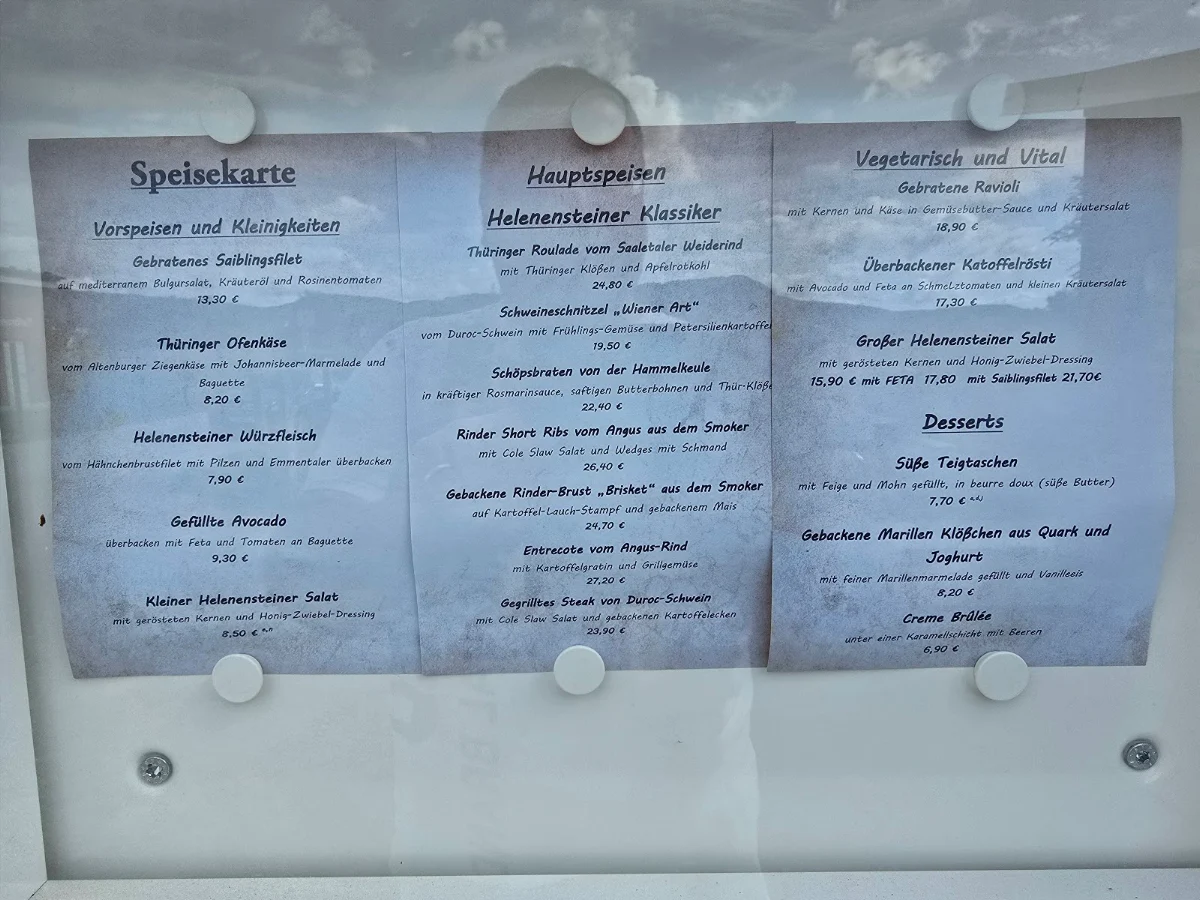 Speisekarte
Vorspeisen und Kleinigkeiten
Gebratenes Saiblingsfilet
auf mediterranem Bulgursalat, Kräuteröl und Rosinentomaten
13,30 €
Thüringer Ofenkäse
vom Altenburger Ziegenkäse mit Johannisbeer-Marmelade und
Baguette
8,20 €
Helenensteiner Würzfleisch
vom Hähnchenbrustfilet mit Pilzen und Emmentaler überbacken
7,90 €
Gefüllte Avocado
überbacken mit Feta und Tomaten an Baguette
9,30 €
Kleiner Helenensteiner Salat
mit gerösteten Kernen und Honig-Zwiebel-Dressing
8,50 €
Hauptspeisen
Helenensteiner Klassiker
Thüringer Roulade vom Saaletaler Weiderind
mit Thüringer Klößen und Apfelrotkohl
24,80 €
Schweineschnitzel „Wiener Art“
vom Duroc-Schwein mit Frühlings-Gemüse und Petersilienkartoffel
19,50 €
Schöpsbraten von der Hammelkeule
in kräftiger Rosmarinsauce, saftigen Butterbohnen und Thür-Klöße
22,40 €
Rinder Short Ribs vom Angus aus dem Smoker
mit Cole Slaw Salat und Wedges mit Schmand
26,40 €
Gebackene Rinder-Brust „Brisket“ aus dem Smoker
auf Kartoffel-Lauch-Stampf und gebackenem Mais
24,70 €
Entrecote vom Angus-Rind
mit Kartoffelgratin und Grillgemüse
27,20 €
Gegrilltes Steak von Duroc-Schwein
mit Cole Slaw Salat und gebackenen Kartoffelecken
23,90 €
Vegetarisch und Vital
Gebratene Ravioli
mit Kernen und Käse in Gemüsebutter-Sauce und Kräutersalat
18,90 €
Überbackener Katoffelrösti
mit Avocado und Feta an Schmelztomaten und kleinen Kräutersalat
17,30 €
Großer Helenensteiner Salat
mit gerösteten Kernen und Honig-Zwiebel-Dressing
15,90 € mit FETA 17,80 mit Saiblingsfilet 21,70€
Desserts
Süße Teigtaschen
mit Feige und Mohn gefüllt, in beurre doux (süße Butter)
7,70 €
Gebackene Marillen Klößchen aus Quark und
Joghurt
mit feiner Marillenmarmelade gefüllt und Vanilleeis
8,20 €
Creme Brûlée
unter einer Karamellschicht mit Beeren
6,90 €